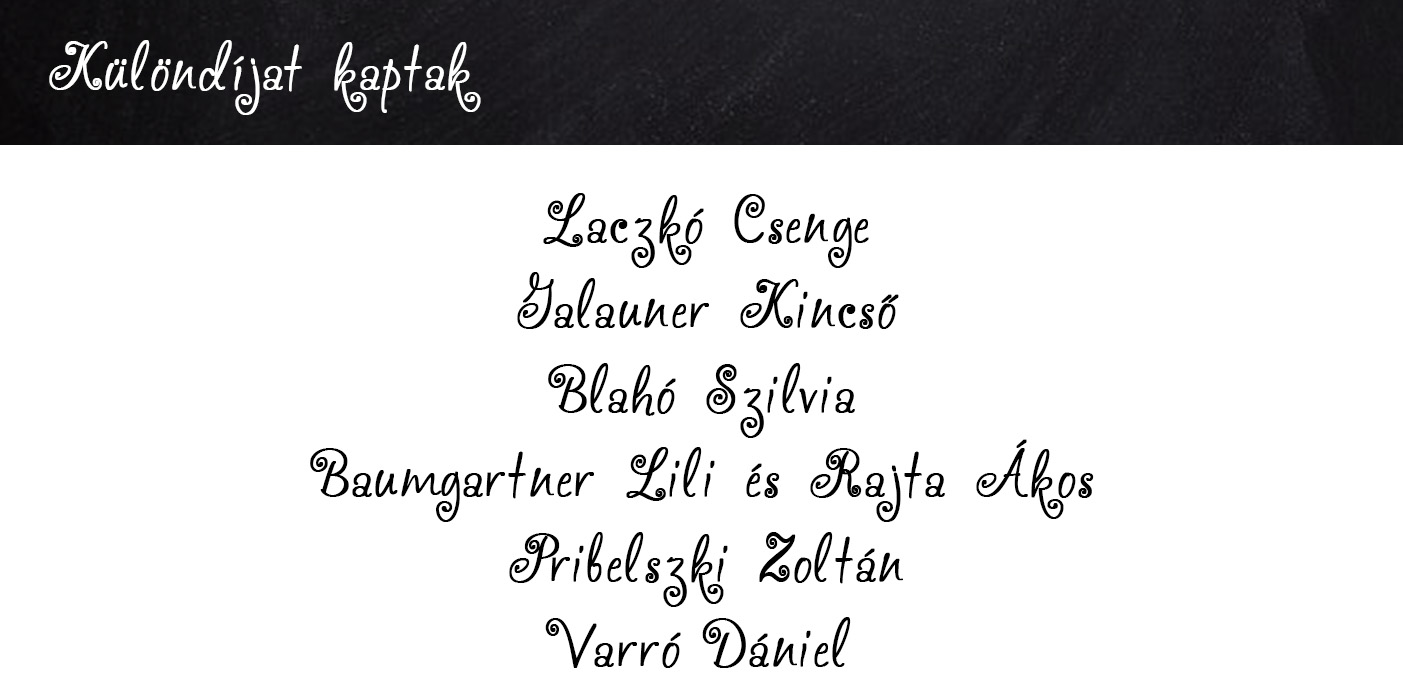 Különdíjat kaptak
Laczkó Csenge
Galauner Kincső
Blahó Szilvia
Baumgartner Lili és Rajta Ákos
Pribelszki Zoltán
Varró Dániel